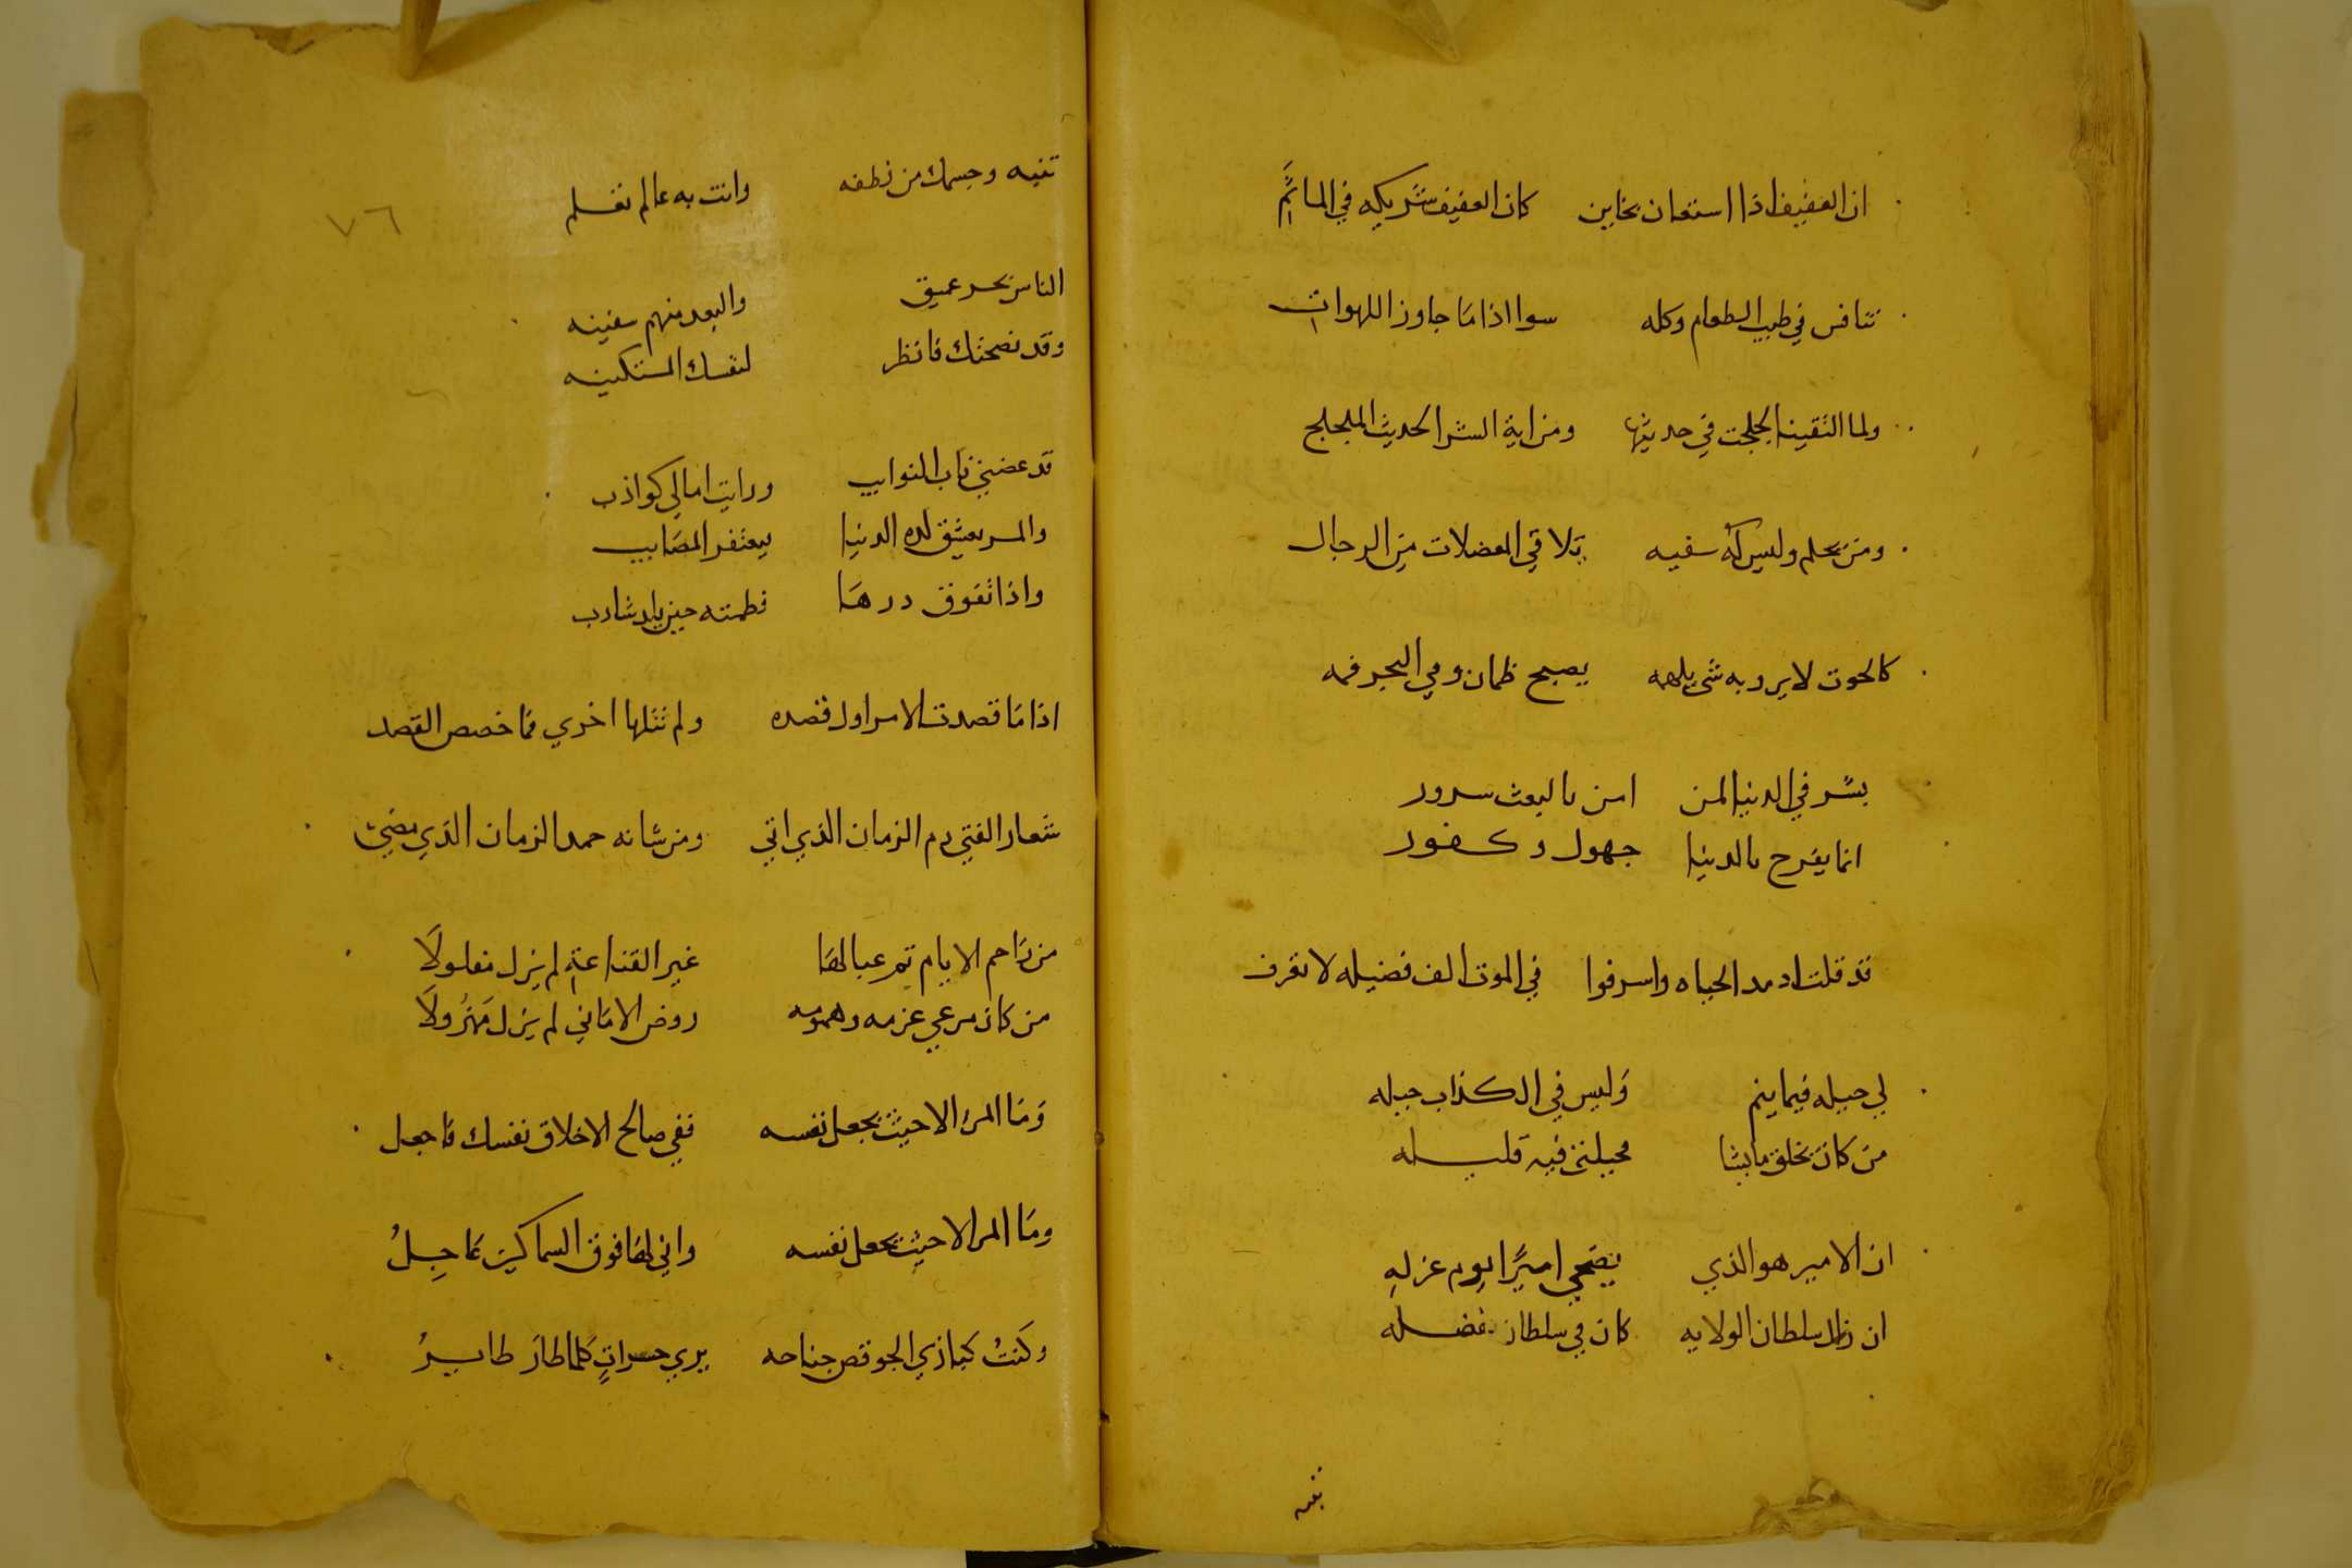 ان العفيف اذا استعان بخاين كان العفيف شريكه في الماثم
تنافس في طيب الطعام وكله سوا اذا ما جاوز اللهوات
ولما التقينا لجلجت في حديثها ومن اية الشر الحديث الملجلج
ومن يحلم وليس له سفيه يلاقي المعضلات من الرجال
كالحوت لا يرويه شي يلهمه يصبح ظمان وفي البحر فمه
بشر في الدنيا لمن امن بالبعث سرور
انما يفرح بالدنيا جهول وكفور
قد قلت اذ مد الحياه واسرفوا في الموت الف فضيله لا تعرف
لي حيله فيما ينم وليس في الكذاب حيله
من كان يخلق ما يشا فحيلتي فيه قليله
ان الامير هو الذي يضحي اميرا يوم عزله
ان زال سلطان الولايه كان في سلطان فضله
تفيه
٧٦
تتيه وجسمك من نطفه وانت به عالم تعلم
الناس بحر عميق والبعد منهم سفينه
وقد نصحتك فانظر لنفسك المستكينه
قد عضني ناب النوايب ورايت امالي كواذب
والمر يعشق لذه الدنيا يعتفر المصايب
واذا تفوق درها فطمته حين يلذ شارب
اذا ما قصدت الامر اول قصده ولم تتلها اخري فما خصص القصد
شعار الفتي ذم الزمان الذي اتي ومن شانه حمد الزمان الذي مضي
من زاحم الايام ثم عبا لها غير القناعة لم يزل مفلولا
من كان مرعي عزمه وهمومه روض الاماني لم يزل مهزولا
وما المرء الا حيث يجعل نفسه ففي صالح الاخلاق نفسك فاجعل
وما المر الا حيث يجعل نفسه واني لها فوق السماكين جاعل
وكنت كبازي الجو قص جناحه يري حسرات كلما طار طاير